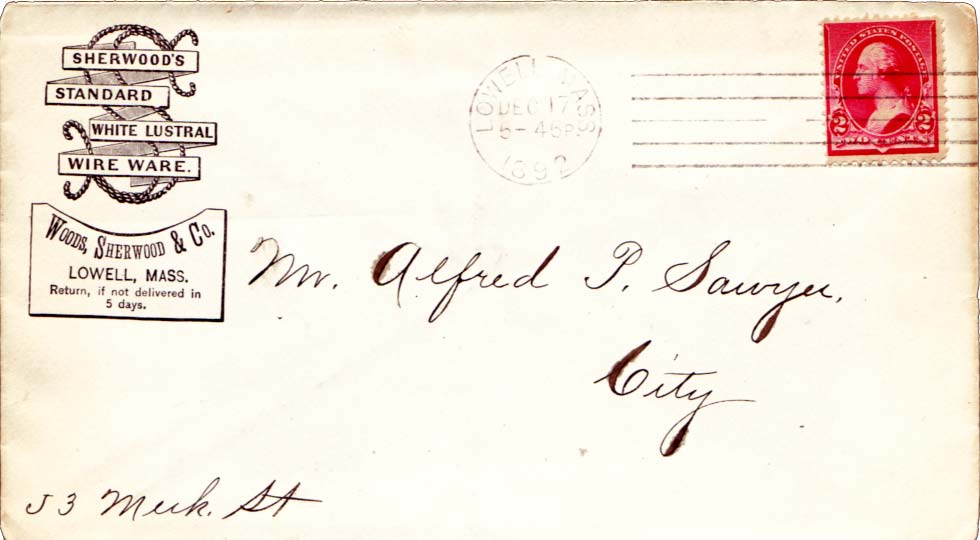 SHERWOOD'S
STANDARD
WHITE LUSTRAL
WIRE WARE.
WOODS, SHERWOOD & CO.
LOWELL, MASS.
Return, if not delivered in
5 days.
LOWELL MASS
DEC 17
5-45P
1892
UNITED STATES POSTAGE
2 2
TWO CENTS
Mr. Alfred P. Sawyer,
City
53 St